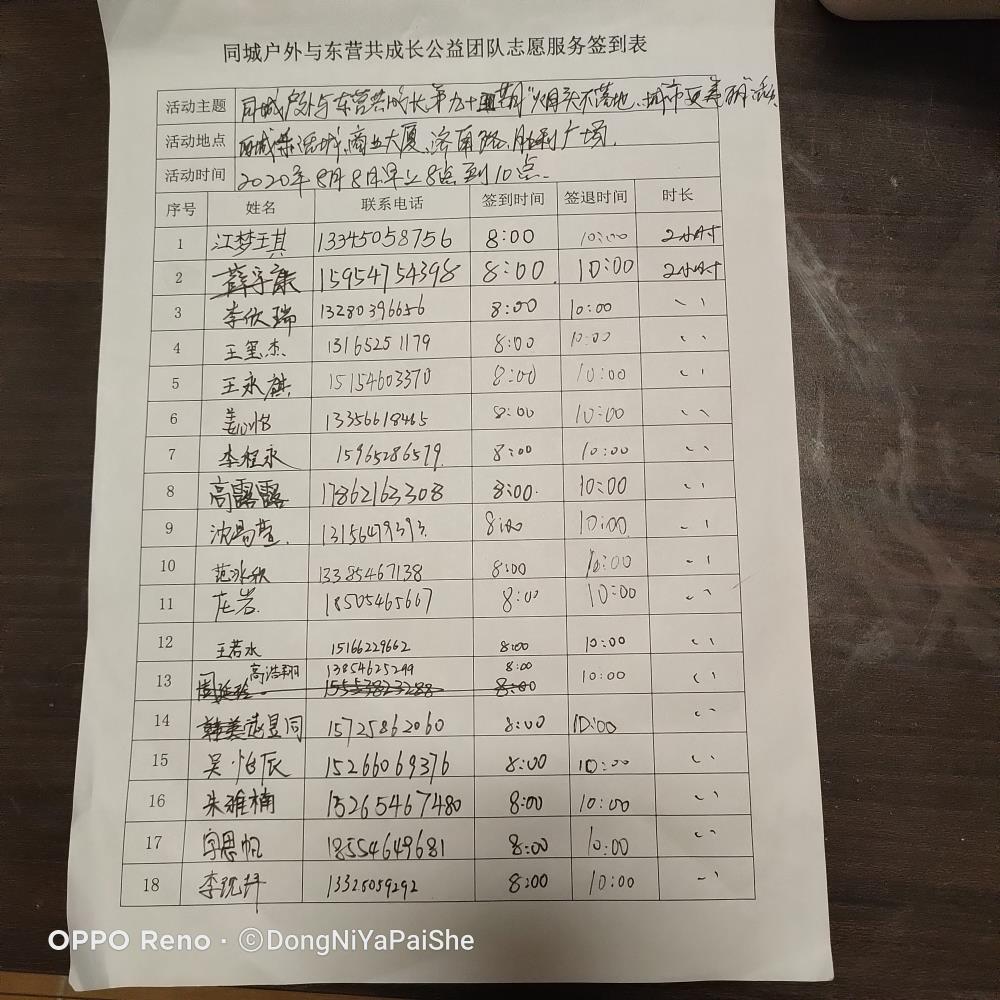 同城户外与东营共成长公益团队志愿服务签到表
活动主题 同城户外与东营共成长第九十五期"烟头不落地、城市更美丽"活动
活动地点 西城 商业大厦、济南路、胜利广场.
活动时间 2020年8月8日早上8点到10点.
序号 姓名 联系电话 签到时间 签退时间 时长
1 江梦琪 13345058756 8:00 10:00 2小时
2 薛宇康 15954754398 8:00 10:00 2小时
3 李欣瑞 13280396656 8:00 10:00 、、
4 王玺杰 13165251179 8:00 10:00 、、
5 王永祺 15154603370 8:00 10:00 、、
6 姜心怡 13356618465 8:00 10:00 、、
7 李程永 15965286579 8:00 10:00 、、
8 高露露 17862163308 8:00 10:00 、、
9 沈昌萱 13156479393 8:00 10:00 、、
10 范冰秋 13385467138 8:00 10:00 、、
11 庄岩 18505465667 8:00 10:00 、、
12 王若水 15166229662 8:00 10:00 、、
13 高浩翔 13854625299 8:00 10:00 、、
15553823288 8:00
14 赵昱同 15725862060 8:00 10:00 、、
15 吴怡辰 15266069376 8:00 10:00 、、
16 朱雅楠 15265467480 8:00 10:00 、、
17 宇思帆 18554649681 8:00 10:00 、、
18 李 13325059292 8:00 10:00 、、
OPPO Reno · ©DongNiYaPaiShe